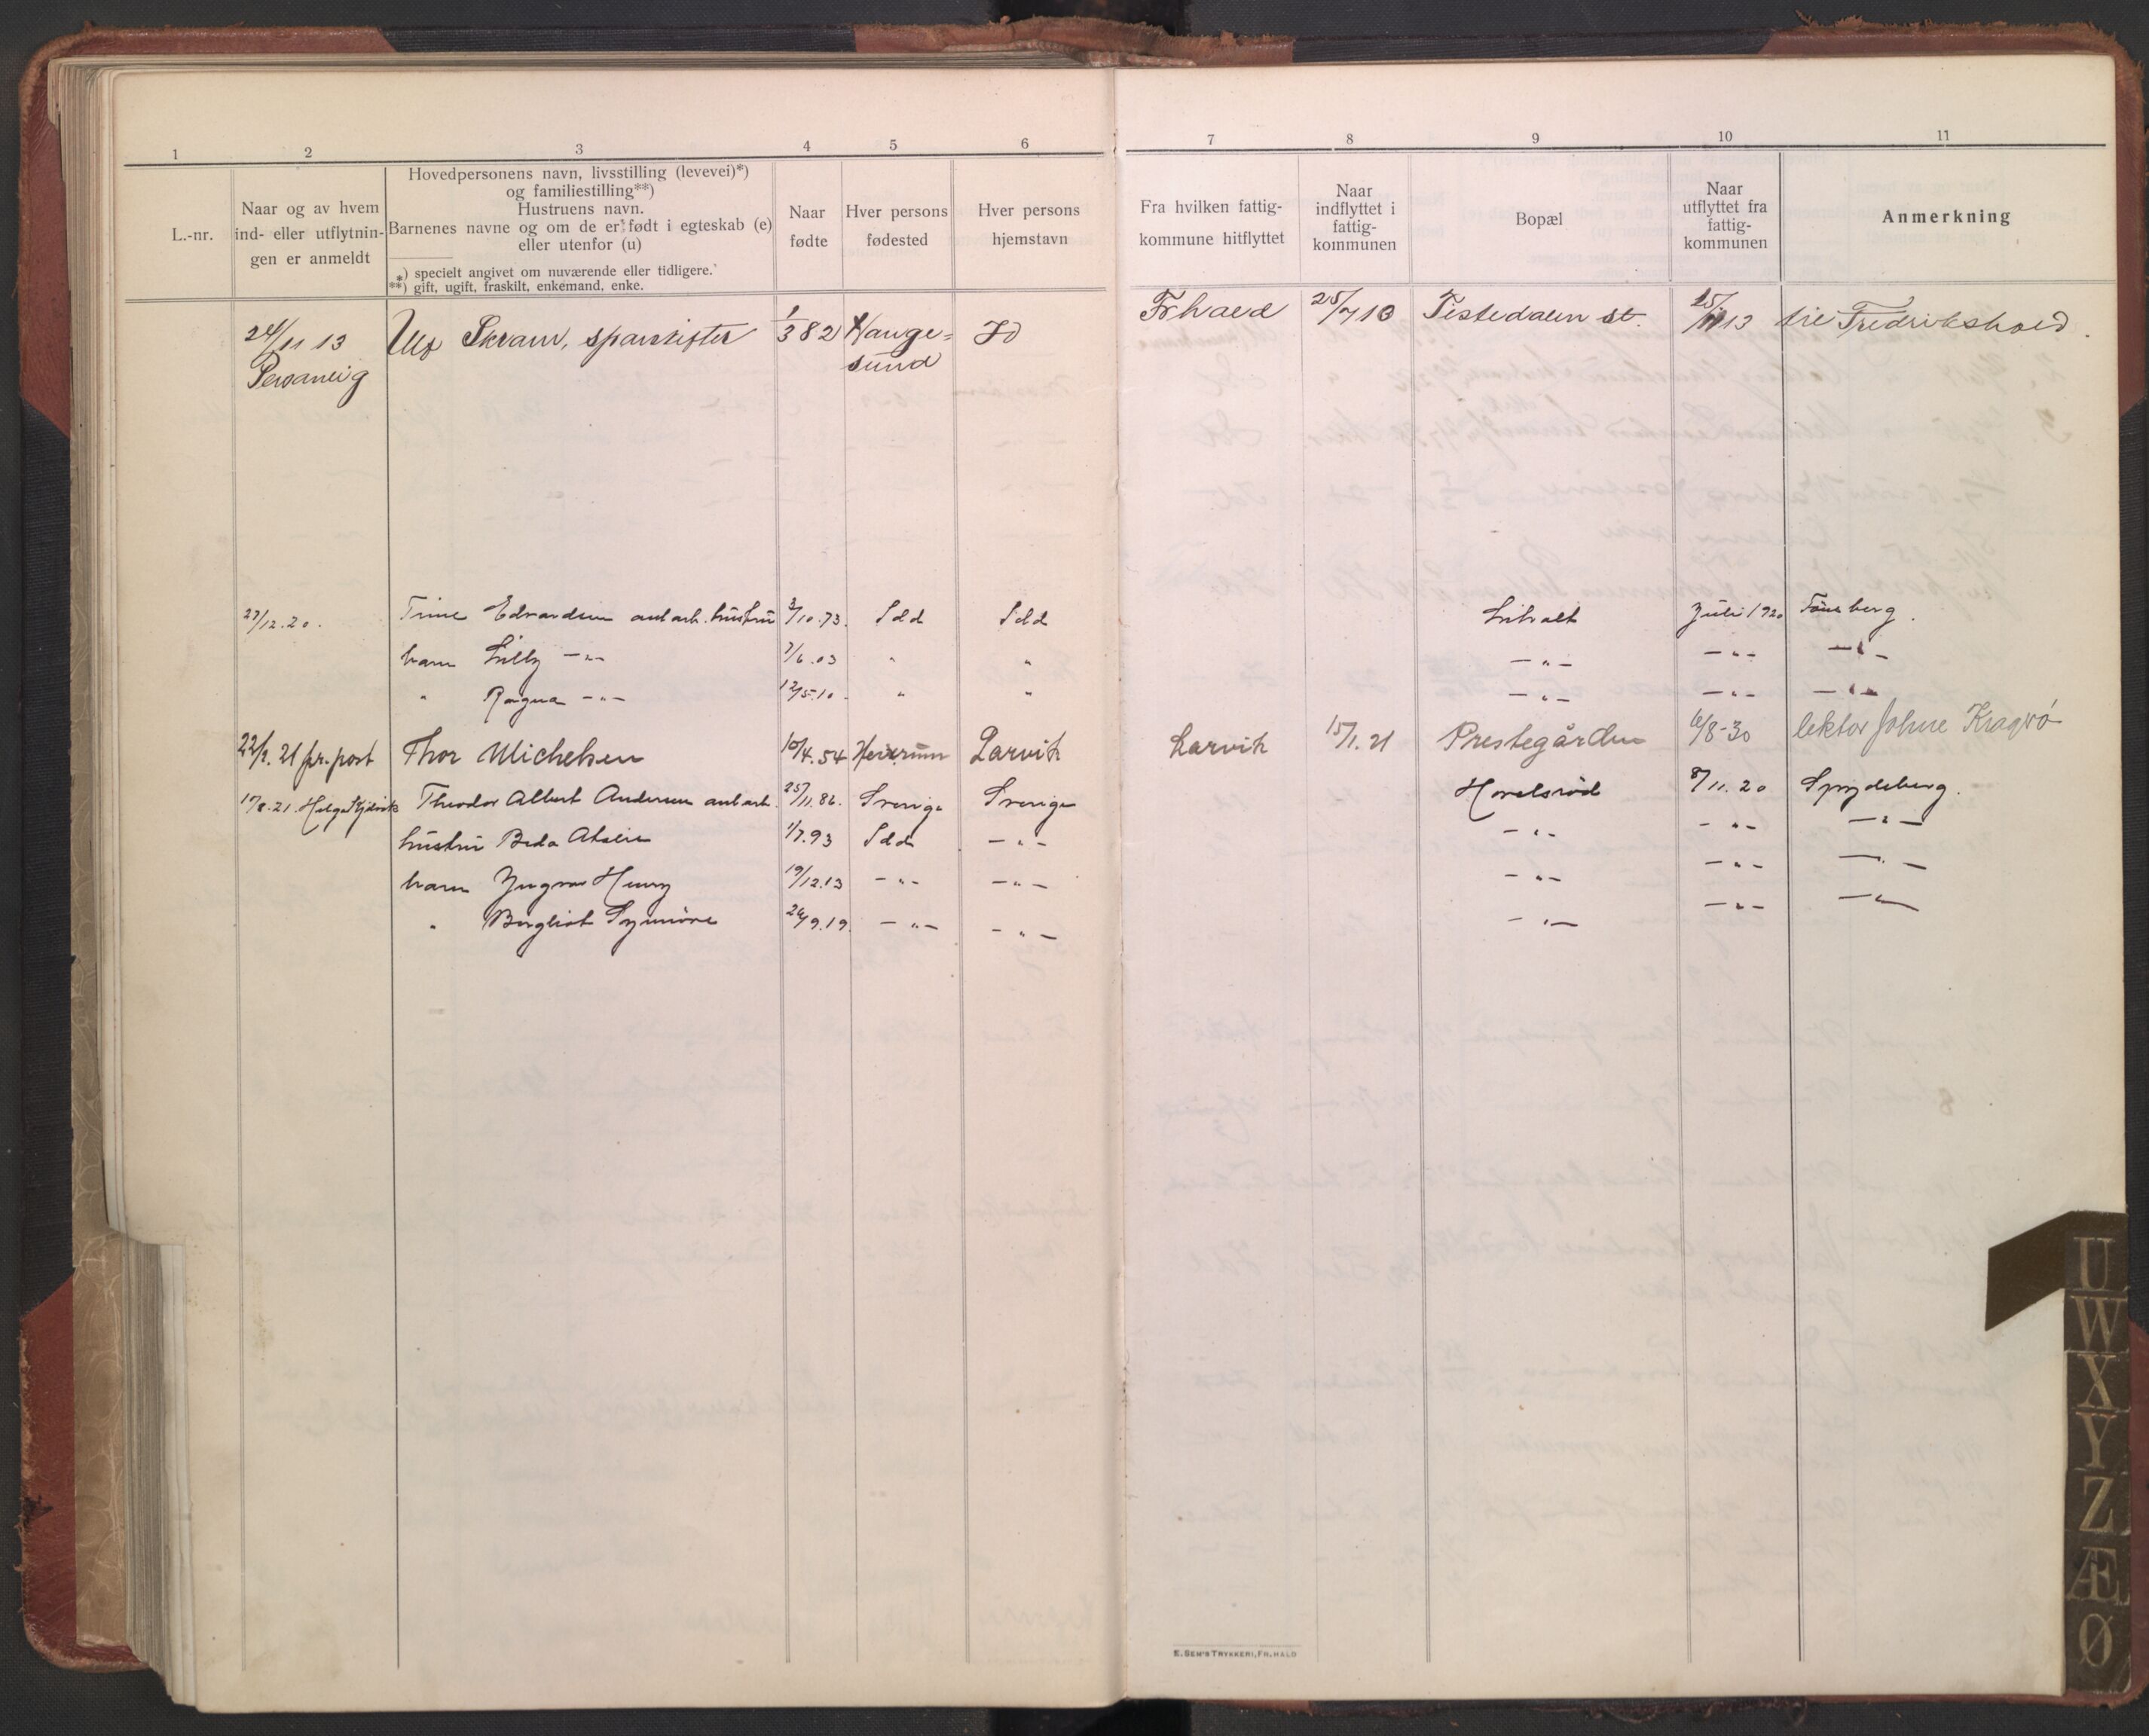 1 2 3 4 5 6 7 8 9 10 11
L.-nr.
Naar og av hvem
ind- eller utflytnin-
gen er anmeldt
Hovedpersonens navn, livsstilling (levevei)*)
og familiestilling**)
Hustruens navn.
Barnenes navne og om de er født i egteskab (e)
eller utenfor (u)
*) specielt angivet om nuværende eller tidligere.
**) gift, ugift, fraskilt, enkemand, enke.
Naar
fødte
Hver persons
fødested
Hver persons
hjemstavn
Fra hvilken fattig-
kommune hitflyttet
Naar
indflyttet i
fattig-
kommunen
Bopæl
Naar
utflyttet fra
fattig-
kommunen
Anmerkning
24/11 13 Skram, 1/3 82 Hauge= Id Frhald 25/7 13 Tistedalen st. 25/11 13 til Fredrikshald.
Personlig sund
27/12.20. Trine Edvardsen hustru 2/10.73. Idd Idd Juli 1920 Tönsberg.
barn Lilly -"- 7/6.03 " " -"- -"- -"-
" Ragna -"- 12/5.10. " " -"- -"- -"-
22/2. 21 pr. post Thor Michelsen 10/4.54 Larvik Larvik 15/1.21 Prestegården 6/8-30 lektor Johne Kragrø
17/8.21. Helge Theodor Albert Andersen 25/11.86. Sverige Sverige 8/11.20 Spydeberg.
hustru Beda 1/7.93 Idd -"- -"- -"- -"-
barn Yngvar Henry 19/12.13 -"- -"- -"- -"- -"-
" Bergliot Synnöve 26/9.19. -"- -"- -"- -"- -"-
E. SEM'S TRYKKERI, FR.HALD
U
W
X
Y
Z
Æ
Ø